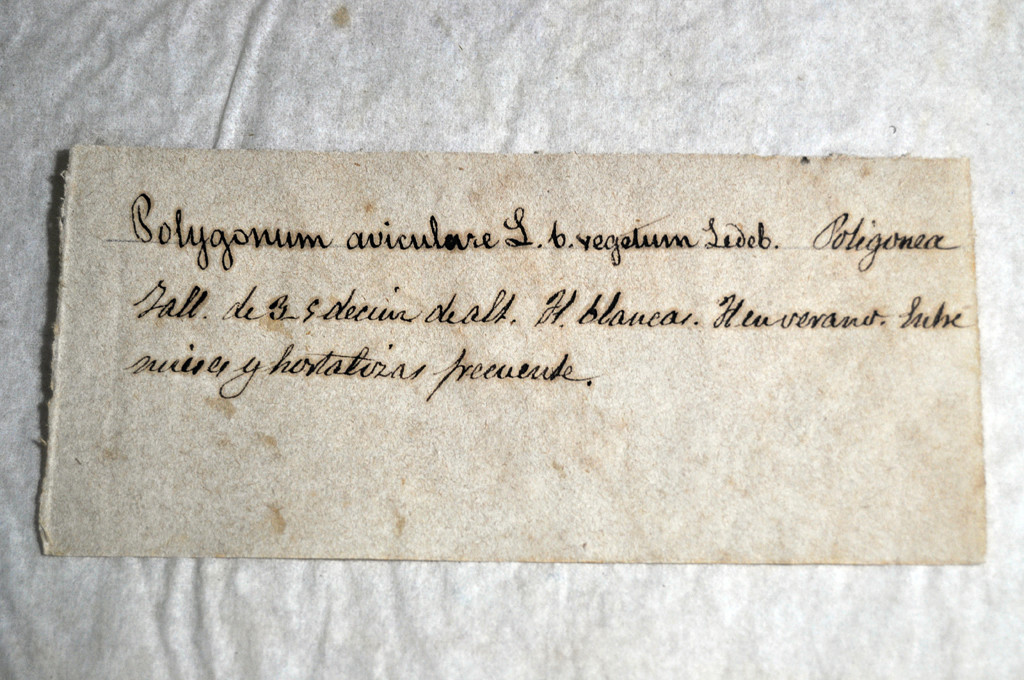 Polygonum aviculare L. b. vegetum Ledeb. Poligonea
Tall. de 3 5 decim de alt. Fl. blancas. Fl en verano. Entre
mieses y hortalizas frecuente.